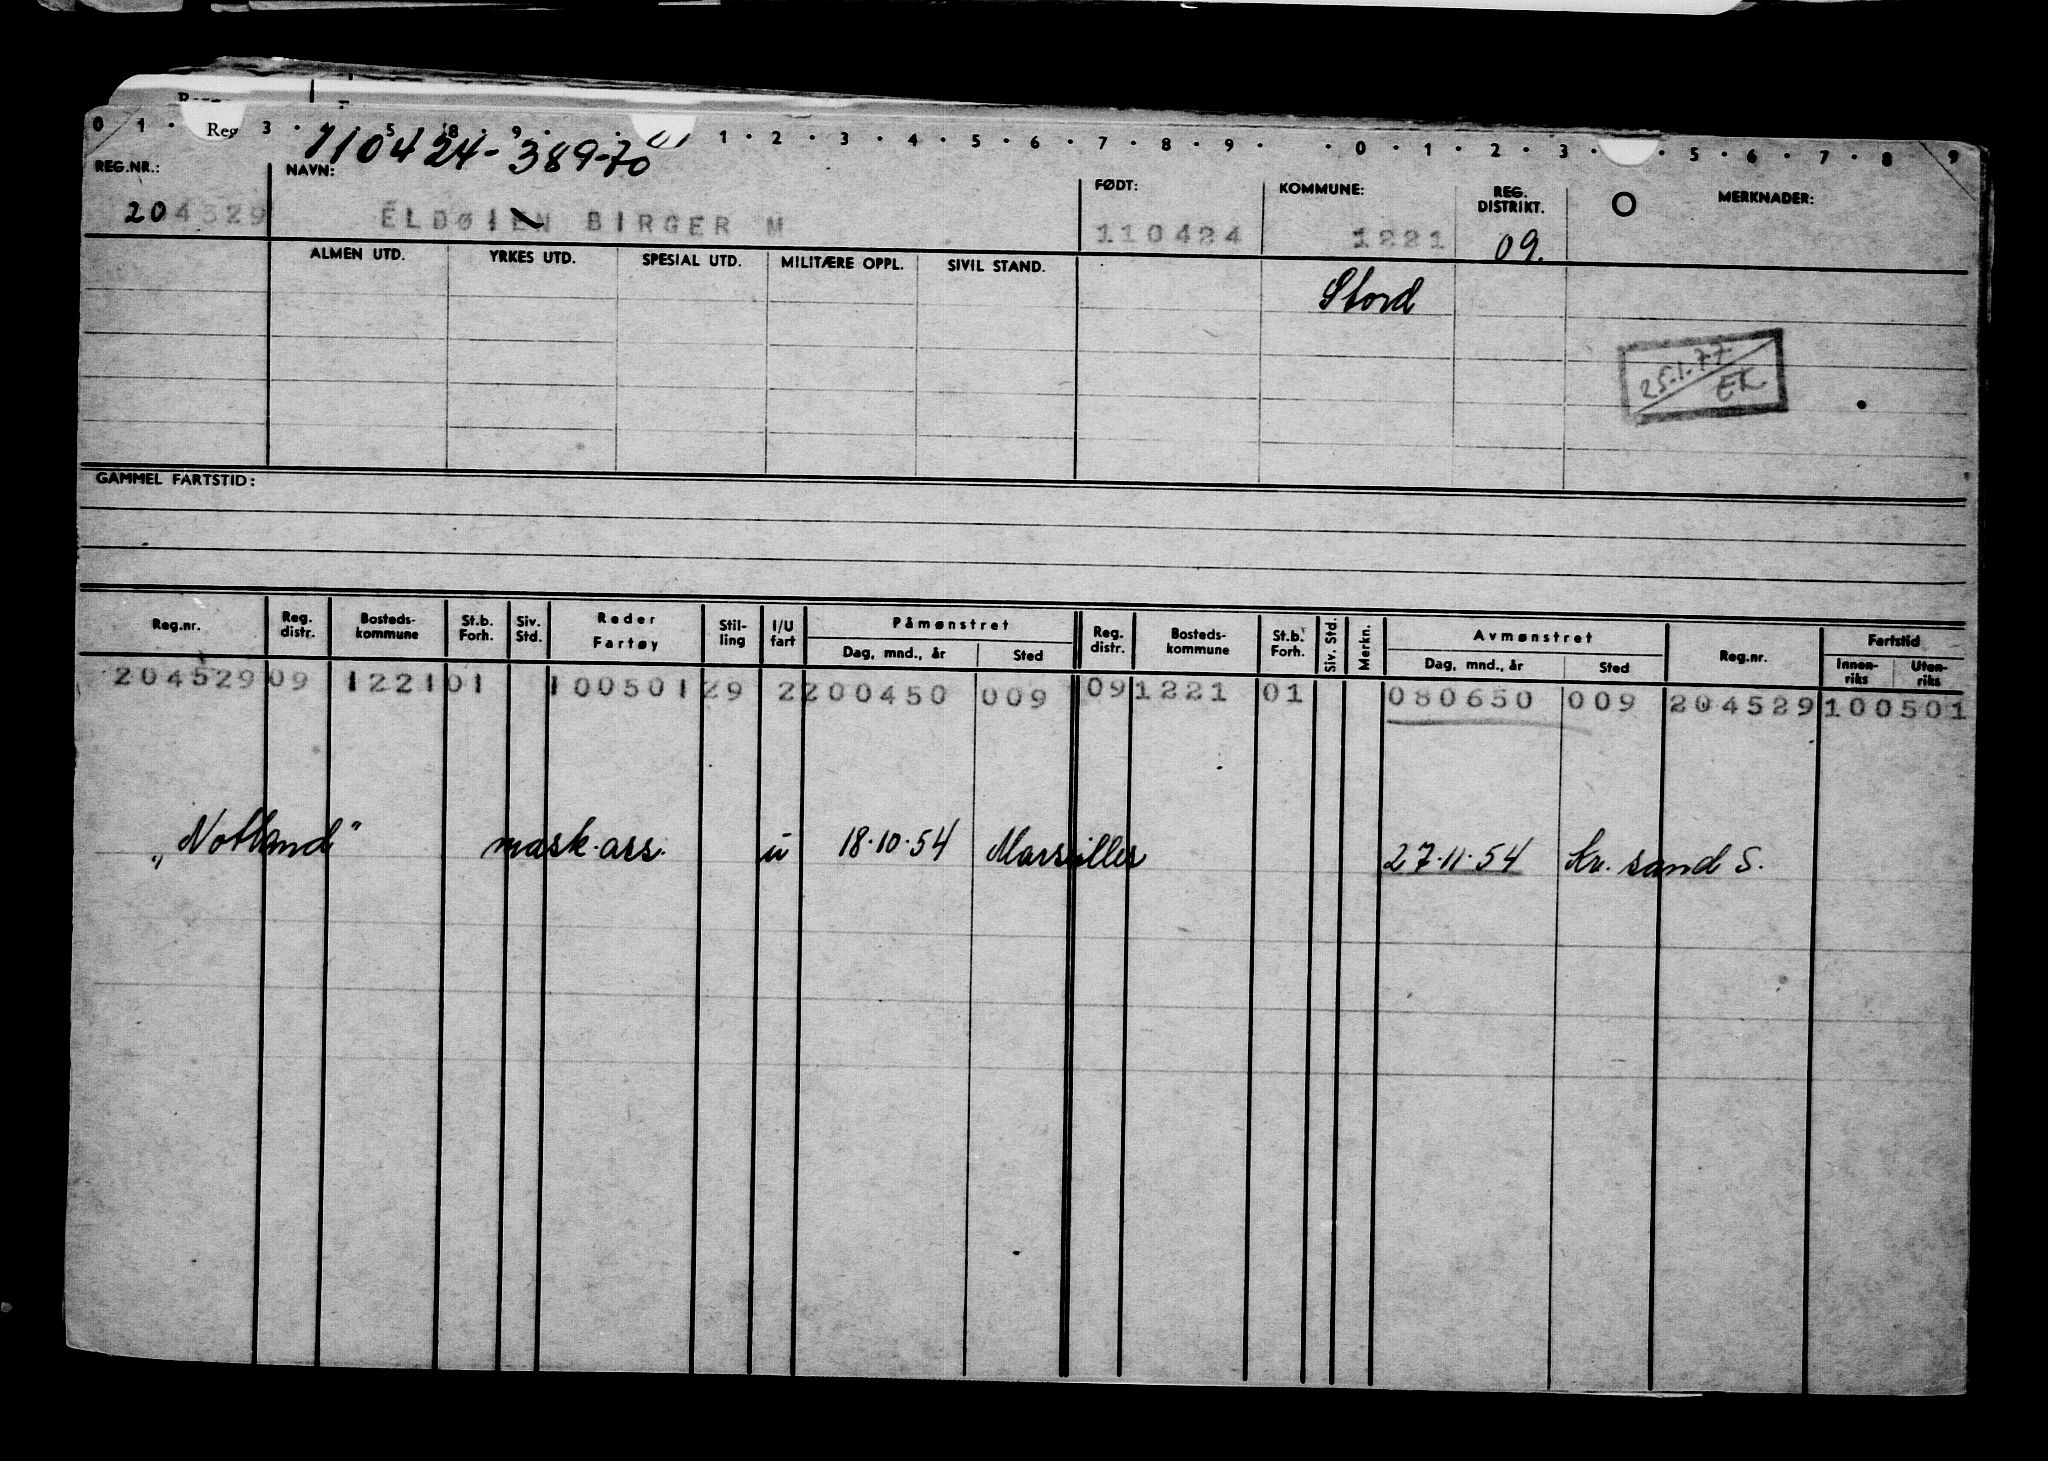 0 1 · 3 · 5 8 · 9 · · 1 · 2 · 3 · 4 · 5 · 6 · 7 · 8 · 9 · · 0 · 1 · 2 · 3 · · 5 · 6 · 7 · 8 9
Reg
110424-38970
REG.NR.: NAVN: FØDT: KOMMUNE: REG. DISTRIKT. O MERKNADER:
204529 ELDØIEN BIRGER M 110424 1221 09.
ALMEN UTD. YRKES UTD. SPESIAL UTD. MILITÆRE OPPL. SIVIL STAND.
Stord
25.1.77
EK.
GAMMEL FARTSTID:
Reg.nr. Reg. distr. Bosteds-kommune St.b. Forh. Siv. Std. Reder Fartøy Stil-ling I/U fart Påmønstret Reg. distr. Bosteds-kommune St.b. Forh. Siv. Std. Merkn. Avmønstret Reg.nr. Fartstid
Dag, mnd., år Sted Dag, mnd., år Sted Innen-riks Uten-riks
204529 09 1221 01 100501 29 2 200450 009 09 1221 01 080650 009 204529 100501
"Notland" mask.ass. u 18.10.54 Marseilles 27.11.54 Kr. sand S.